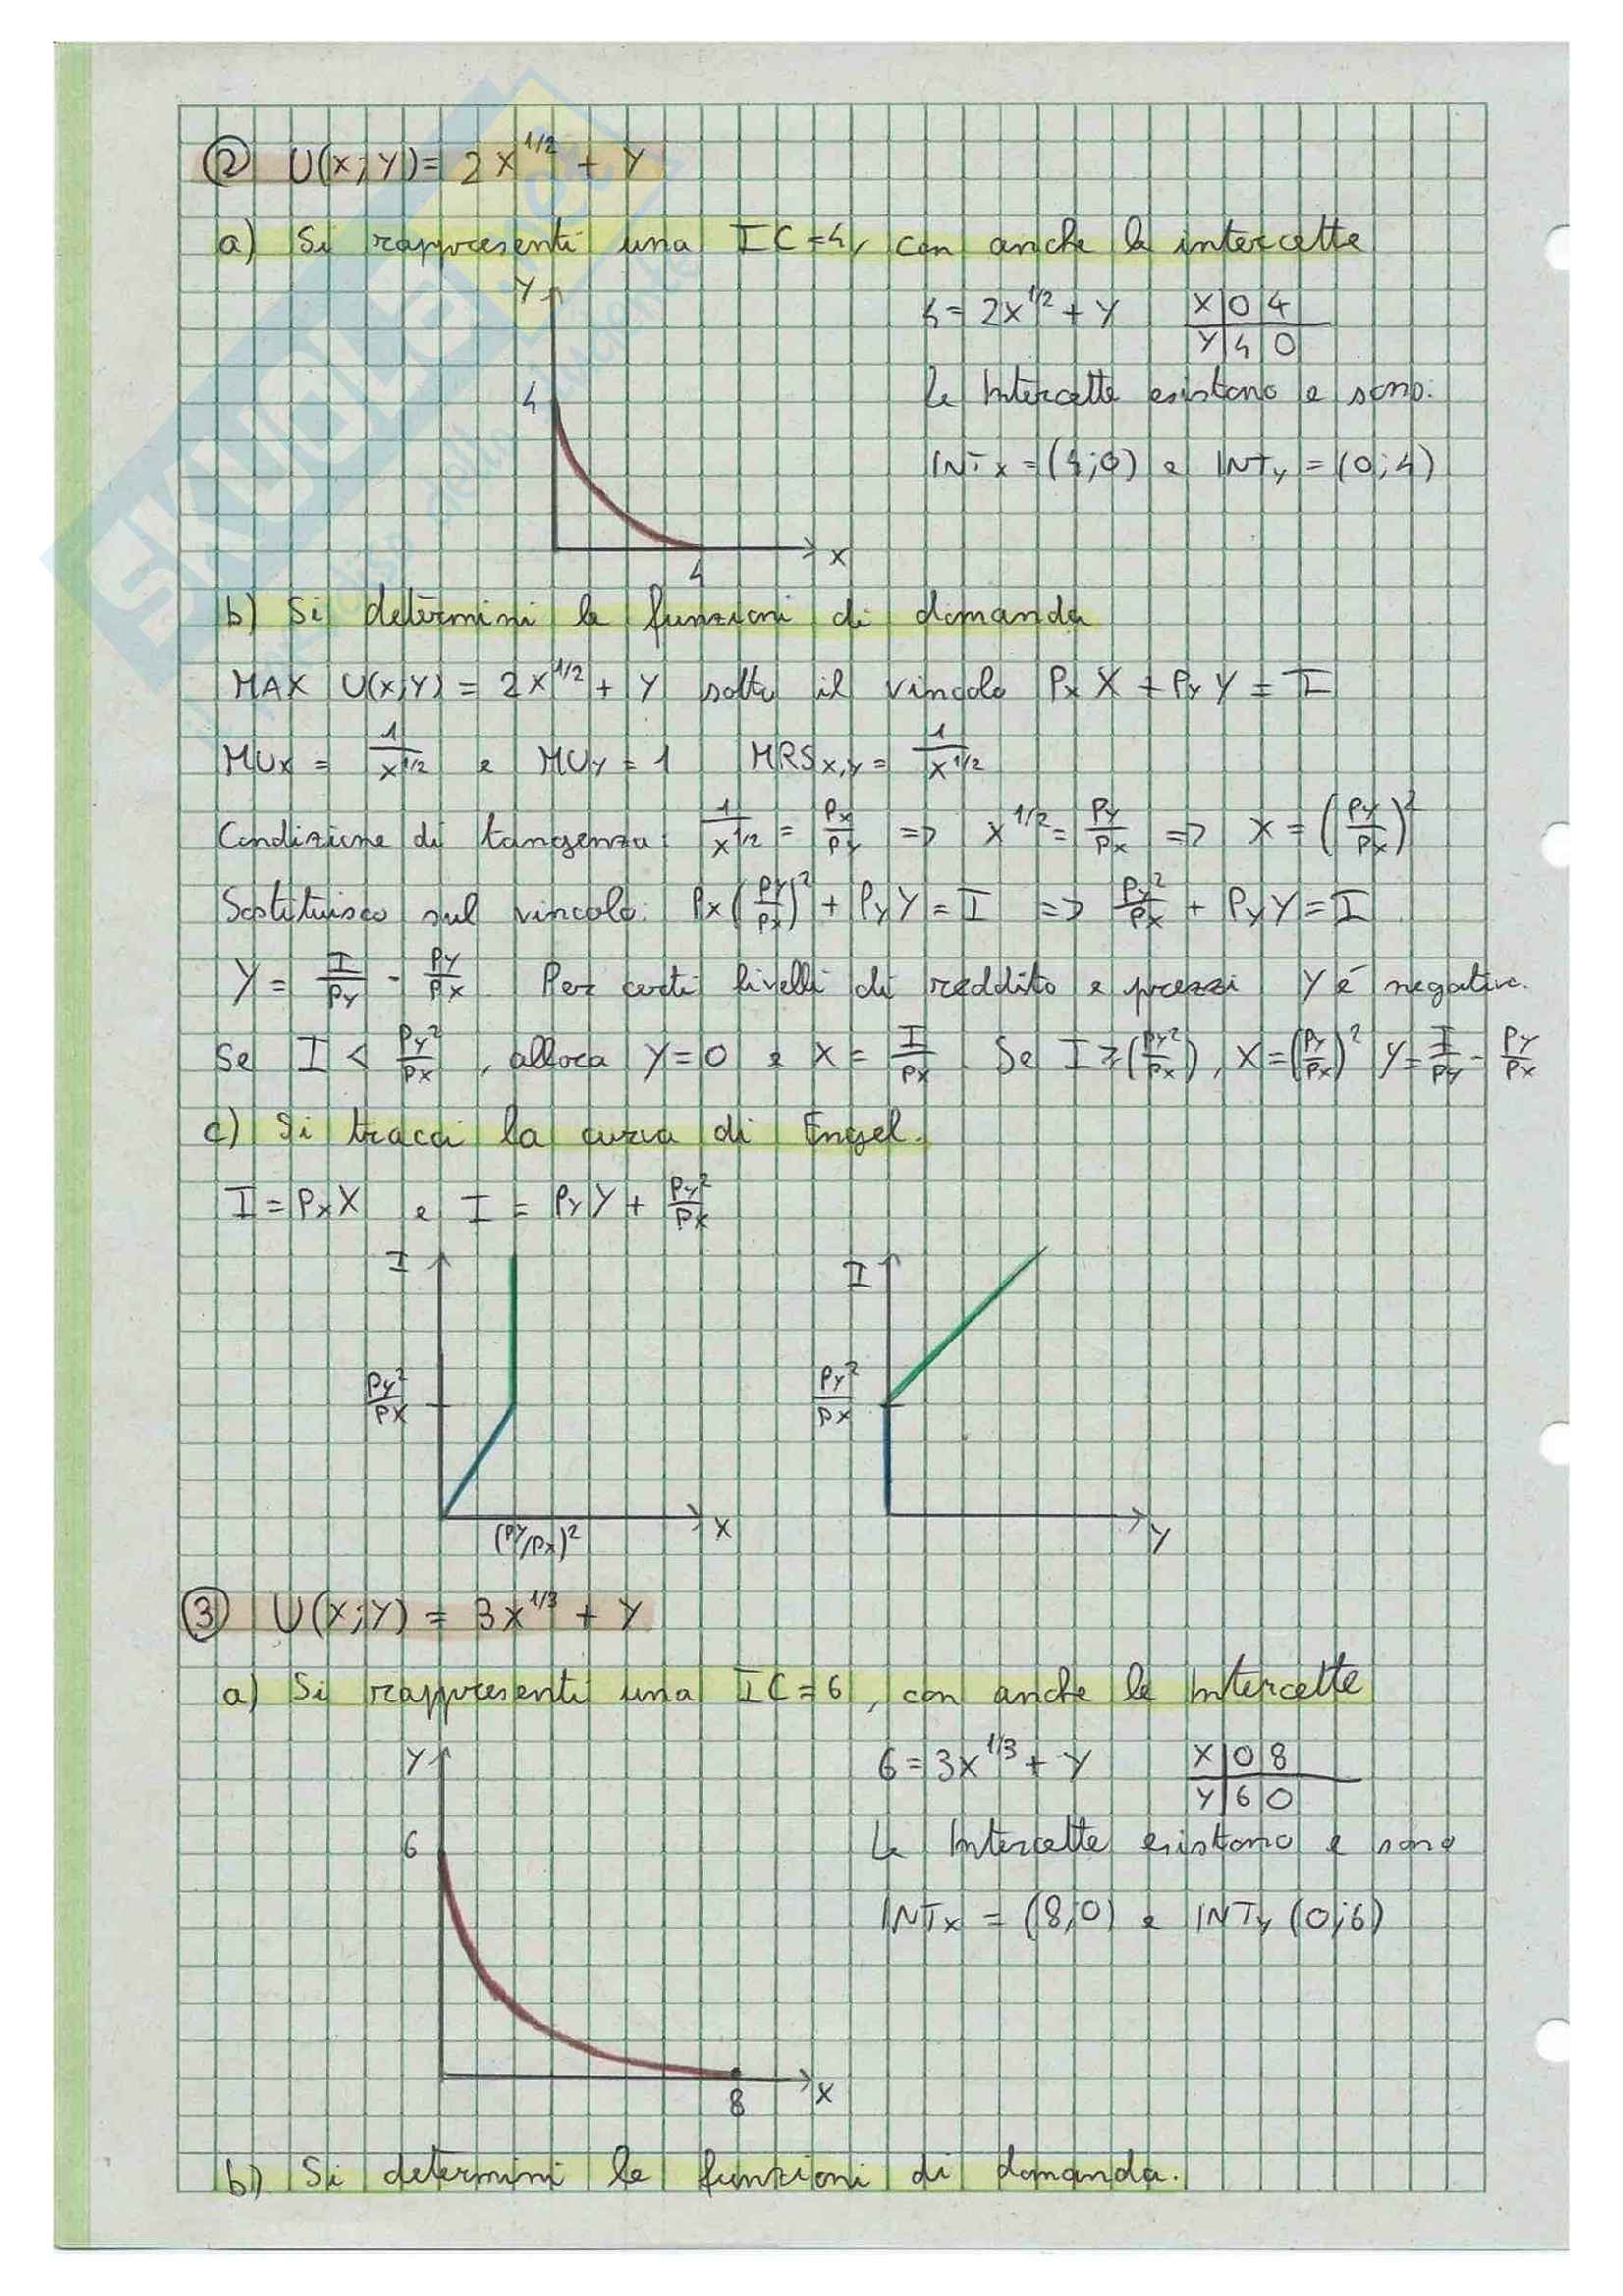 ② U(X;Y) = 2X^1/2 + Y
a) Si rappresenti una IC=4, con anche le intercette
Y
4
X
4
4 = 2X^1/2 + Y
X 0 4
Y 4 0
Le Intercette esistono e sono:
INTx = (4;0) e INTy = (0;4)
b) Si determini le funzioni di domanda
MAX U(X;Y) = 2X^1/2 + Y sotto il vincolo Px X + Py Y = I
MUx = 1/X^1/2 e MUy = 1 MRSx,y = 1/X^1/2
Condizione di tangenza: 1/X^1/2 = Px/Py => X^1/2 = Py/Px => X = (Py/Px)^2
Sostituisco sul vincolo: Px (Py/Px)^2 + Py Y = I => Py^2/Px + Py Y = I
Y = I/Py - Py/Px Per certi livelli di reddito e prezzi Y é negativo.
Se I < Py^2/Px, allora Y=0 e X = I/Px Se I ≥ (Py^2/Px), X = (Py/Px)^2 Y = I/Py - Py/Px
c) Si tracci la curva di Engel.
I = Px X e I = Py Y + Py^2/Px
I
Py^2/Px
(Py/Px)^2
X
I
Py^2/Px
Y
③ U(X;Y) = 3X^1/3 + Y
a) Si rappresenti una IC=6, con anche le Intercette
Y
6
X
8
6 = 3X^1/3 + Y
X 0 8
Y 6 0
Le Intercette esistono e sono
INTx = (8;0) e INTy (0;6)
b) Si determini le funzioni di domanda.
SKUOLA.net